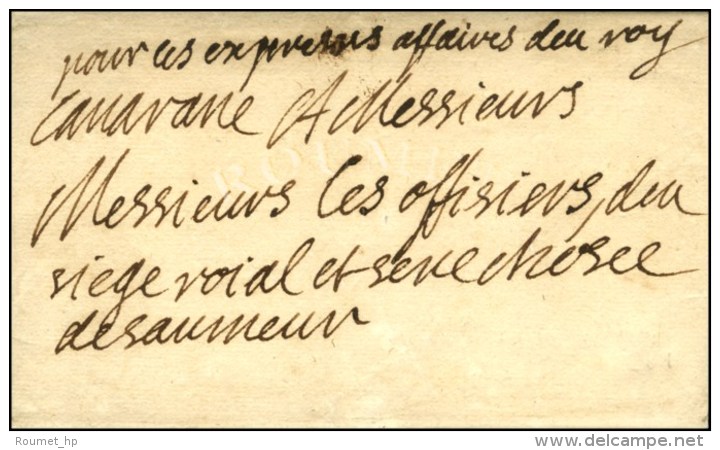 pour les expresses affaires deu roy
A Messieurs
Messieurs les offisiers, deu
siege roial et senechosee
desaumeur
Roumet_hp
delcampe.net